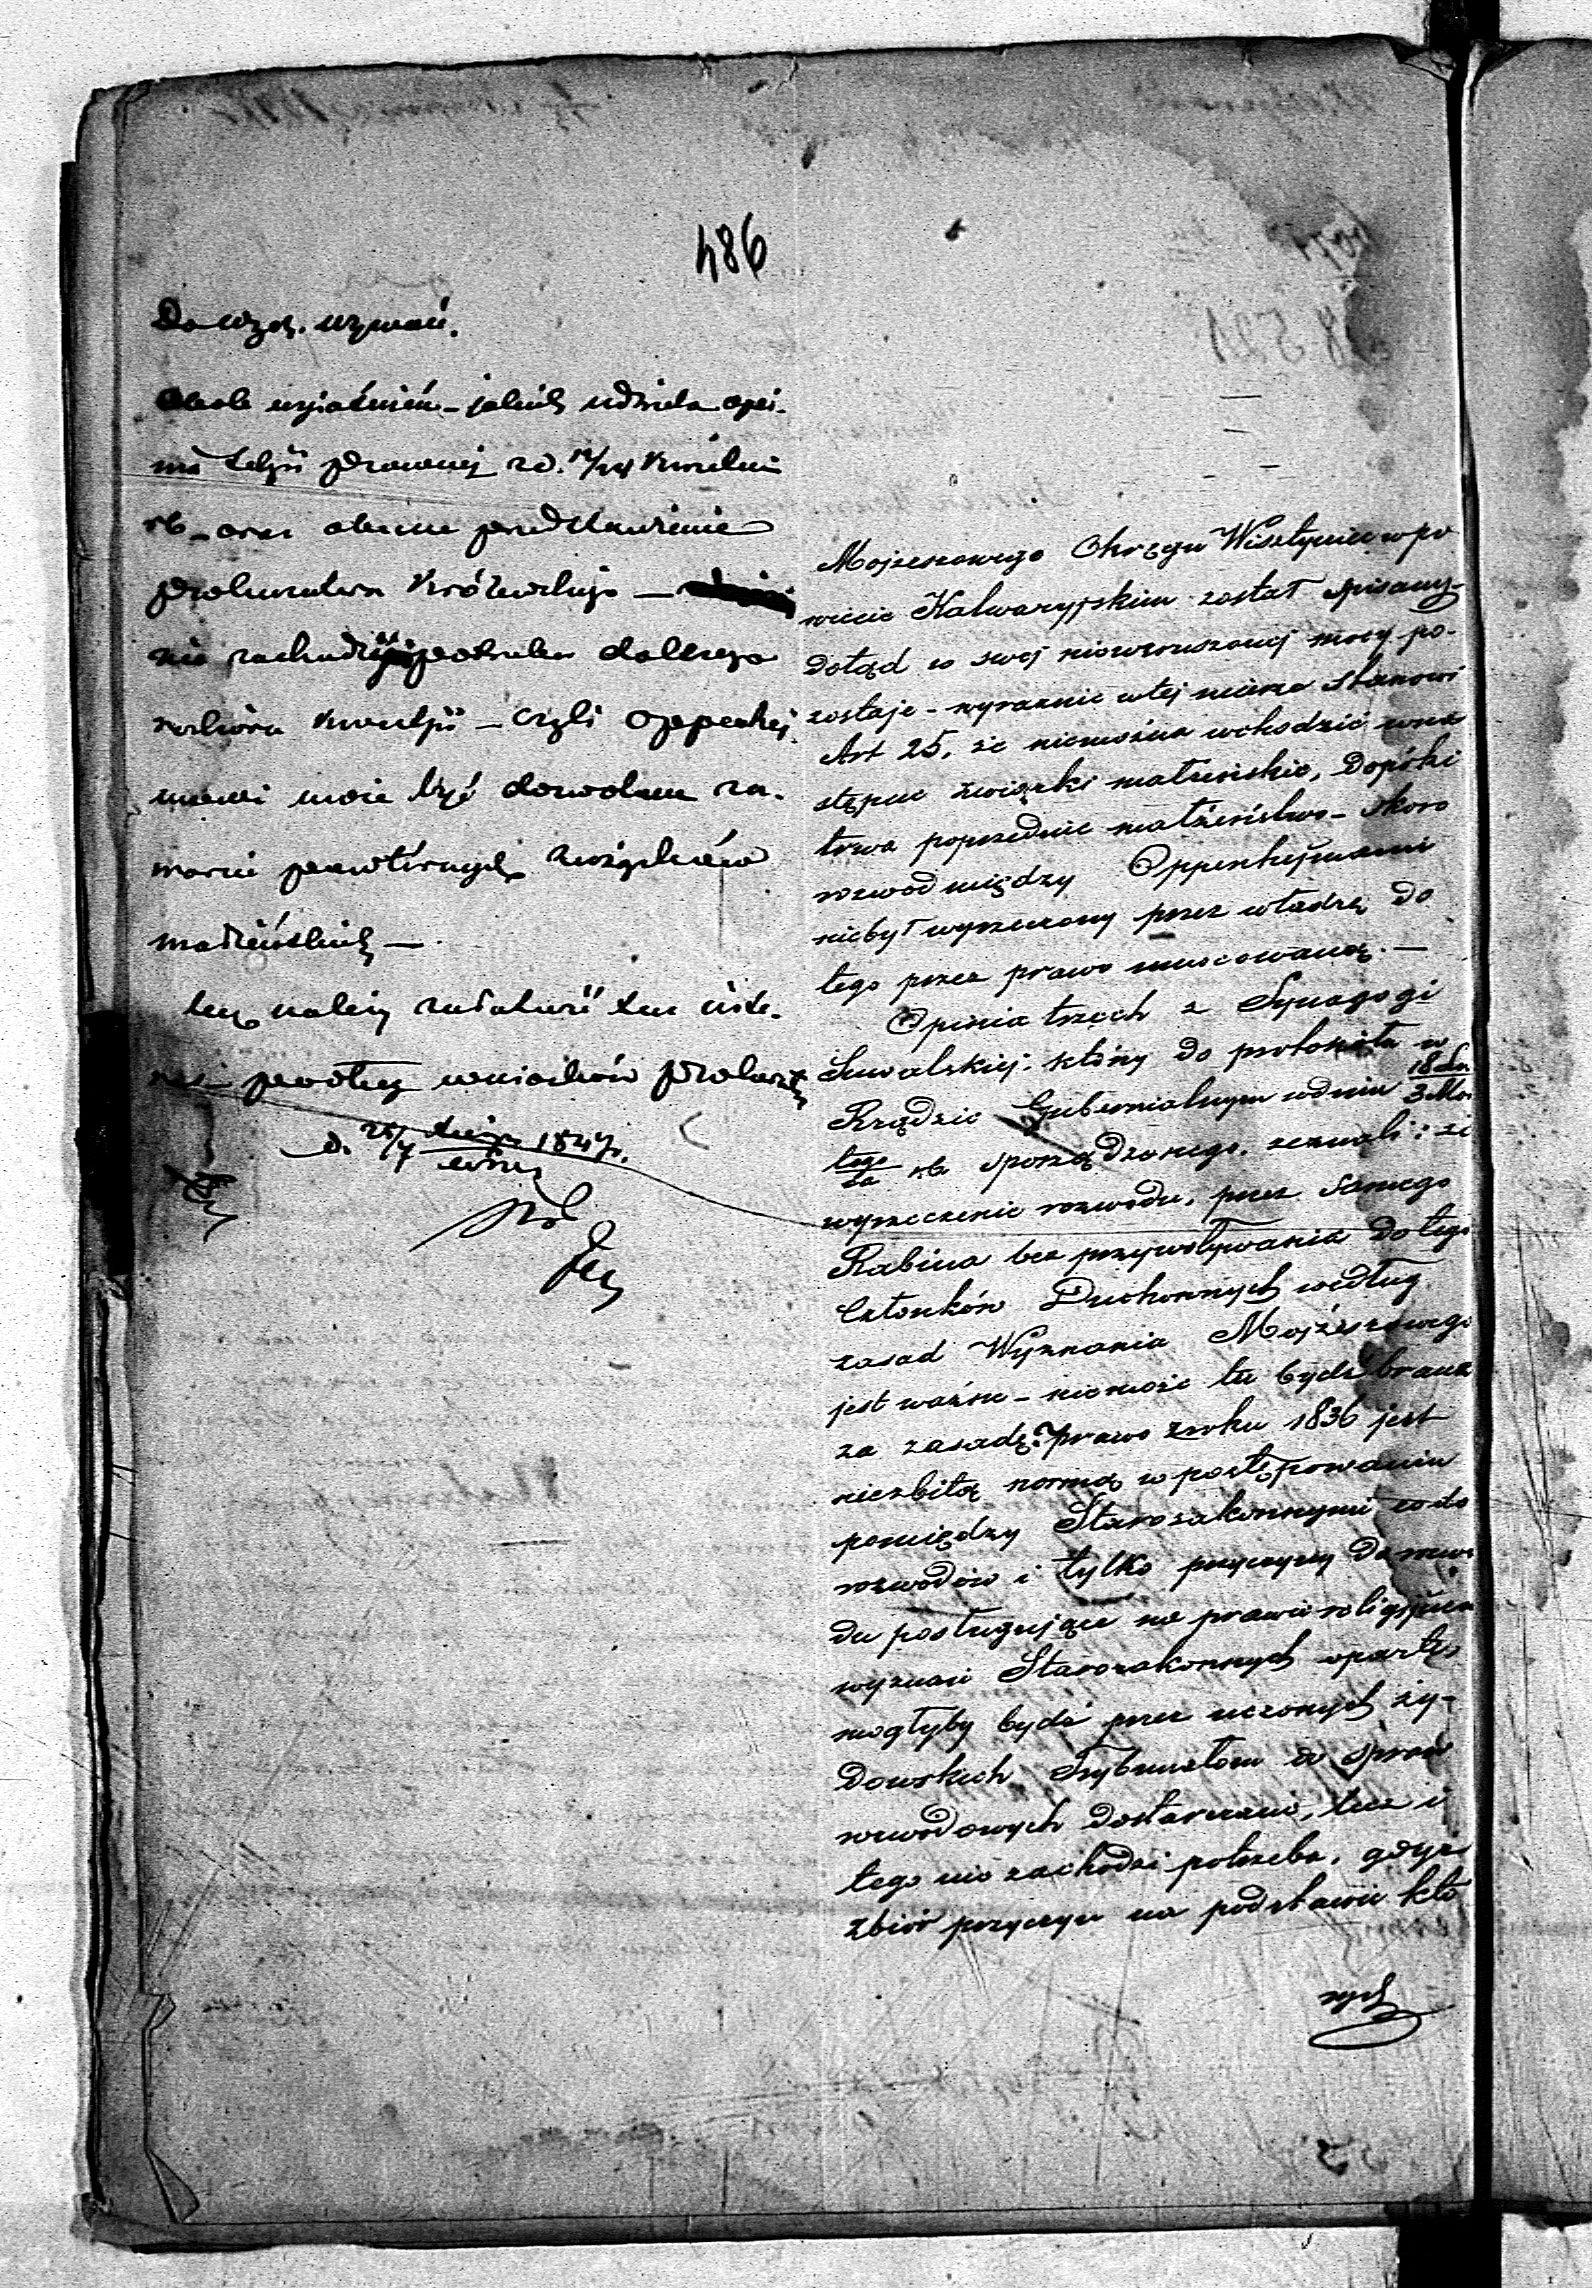 486
Do Wydz. wyznań.
Obok wyjaśnień – jakich udziela opi-
nia Sekcji prawnej z d. 12/24 Kwietnia
rb – oraz obecne przedstawienie
Prokuratora Królewskiego –
nie zachodzi potrzeba dalszego
rozbioru kwestji – czyli Oppenhej-
mowi może być dozwolone za-
warcie powtórnych związków
małżeńskich –
należy załatwić ten inte-
res podług wniosków Prokura
d. 1847 r.
Mojżeszowego Okręgu Wisztyniec w po
wiecie Kalwaryjskim został spisany
dotąd w swej niewzruszonej mocy po-
zostaje – wyraźnie w tej mierze stanowi
Art 25, że niemożna wchodzić w na
stępne związki małżeńskie, dopóki
trwa poprzednie małżeństwo – skoro
rozwód między Oppenhejmami
niebył wyrzeczony przez władzę do
tego przez prawo umocowaną. –
Opinia trzech z Synagogi
Suwalskiej: którzy do protokółu w
Rządzie Gubernialnym w dniu 18 Lu 3 Mar
tego ca rb sporządzonego, zeznali: że
wyrzeczenie rozwodu, przez samego
Rabina bez przywoływania do tego
Członków Duchownych według
zasad Wyznania Mojżeszowego
jest ważne – niemoże tu bydź braną
za zasadę: prawo z roku 1836 jest
niezbitą normą w postępowaniu
pomiędzy Starozakonnymi co do
rozwodów i tylko przyczyny do rozwo
du posługujące na prawie religijnem
wyznań Starozakonnych oparte
mogłyby bydź przez uczonych ży-
dowskich Trybunałom w spraw
rozwodowych dostarczane, lecz i
tego nie zachodzi potrzeba, gdyż
zbiór przyczyn na podstawie któ
rych